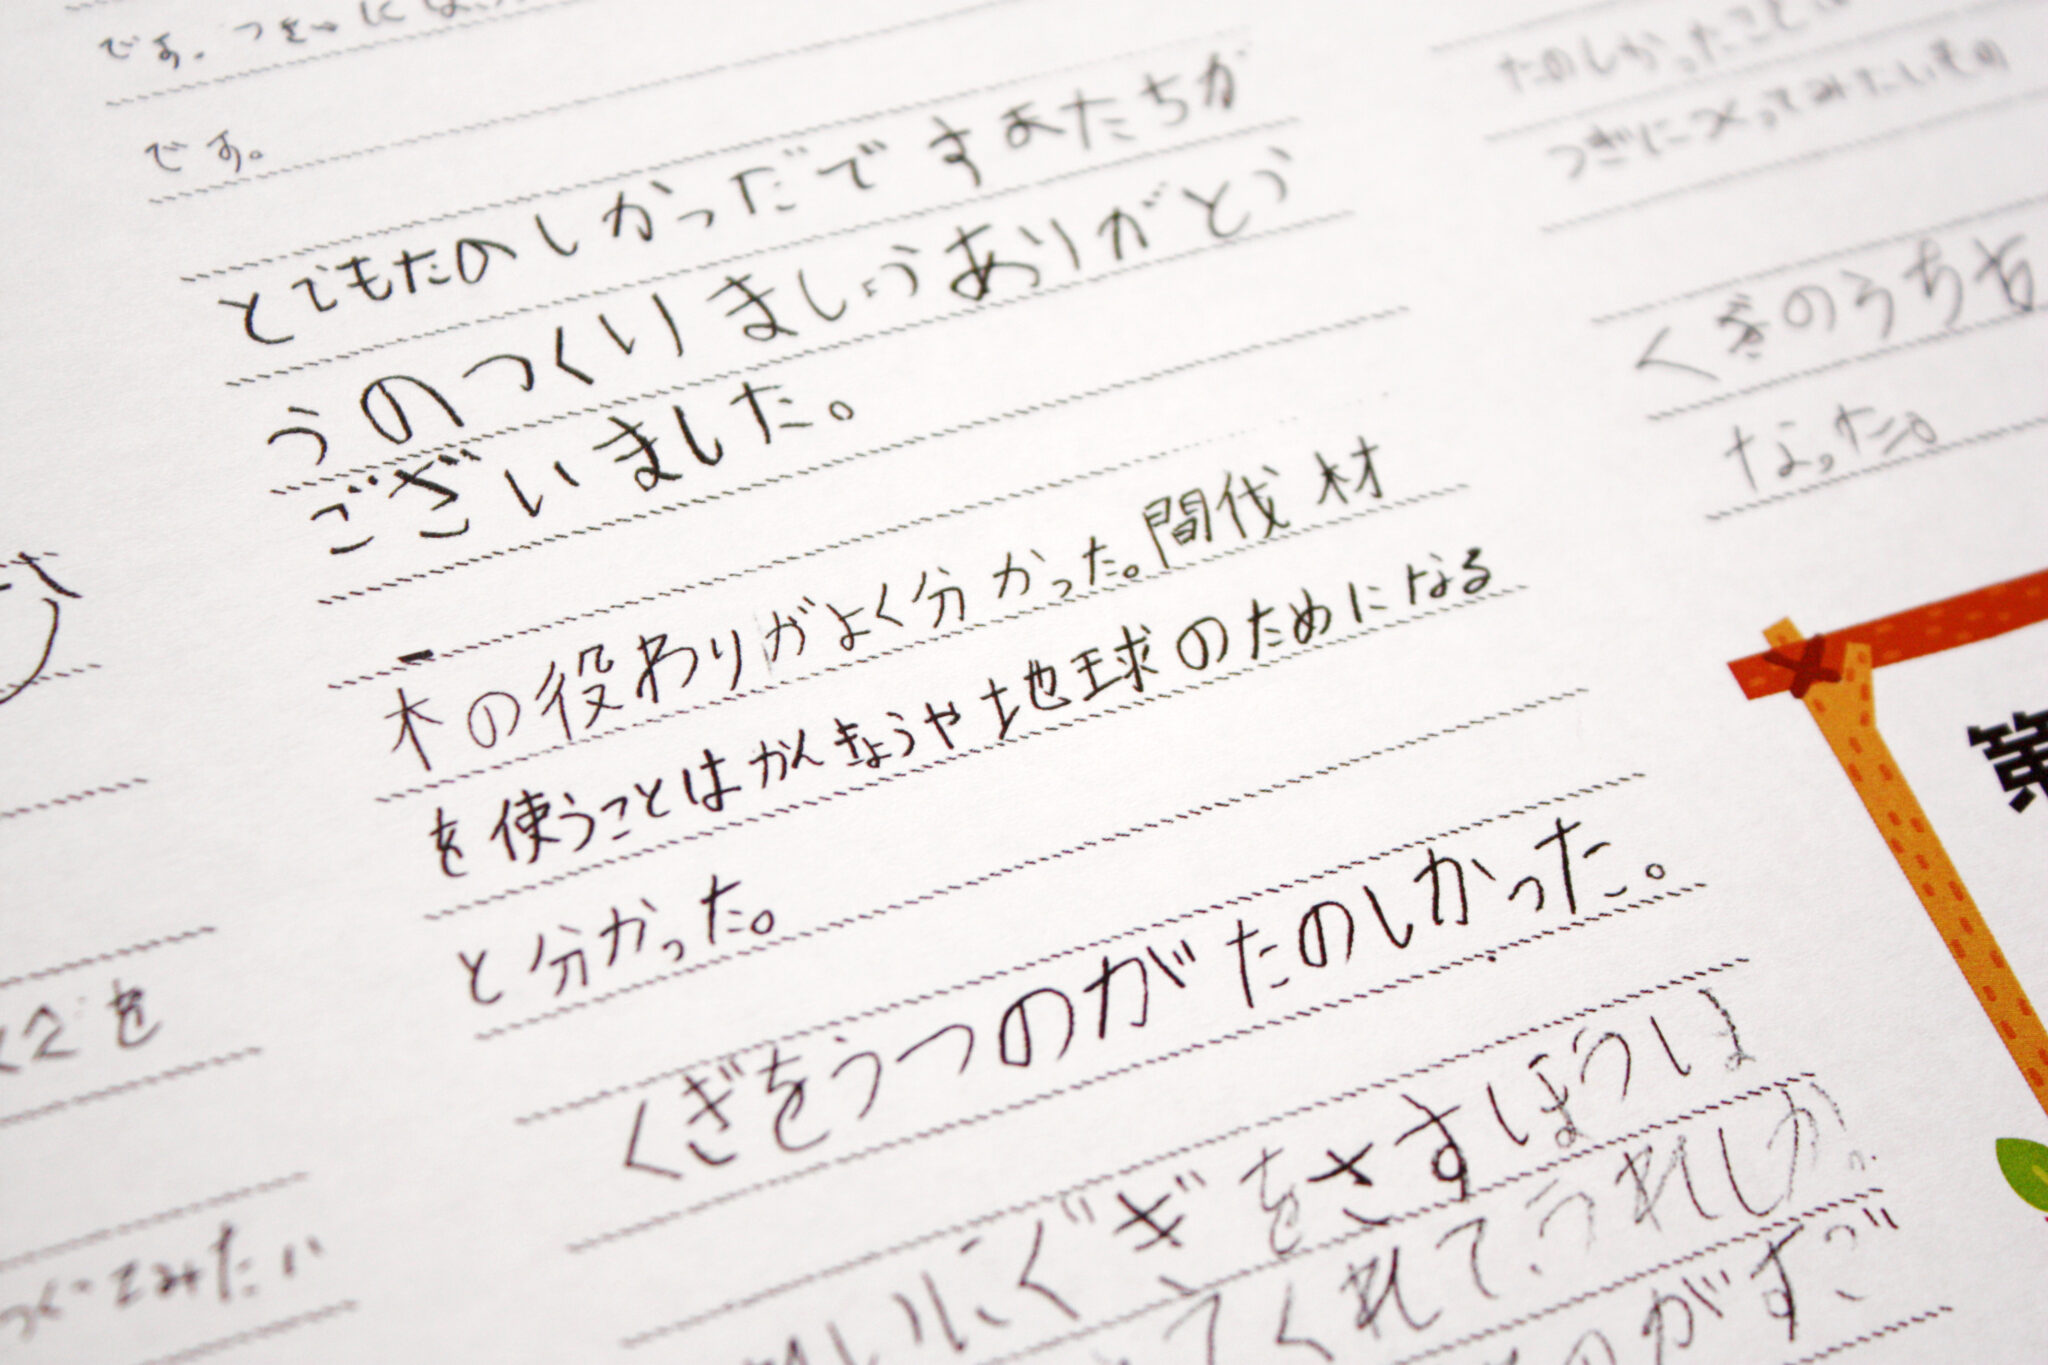 です。
とでもたのしかっだですまたちが
うのつくりましょうありがとう
ございました。
木の役わりがよく分かった。間伐材
を使うことはかんきょうや地球のためになる
と分かった。
くぎをうつのがたのしかった。
にぐぎをさすほうほ
てくれて、うれしか
のがすご
を
つくってみたい
たのしかったことは
つぎにつくってみたいもの
くぎのうちを
なった。
第